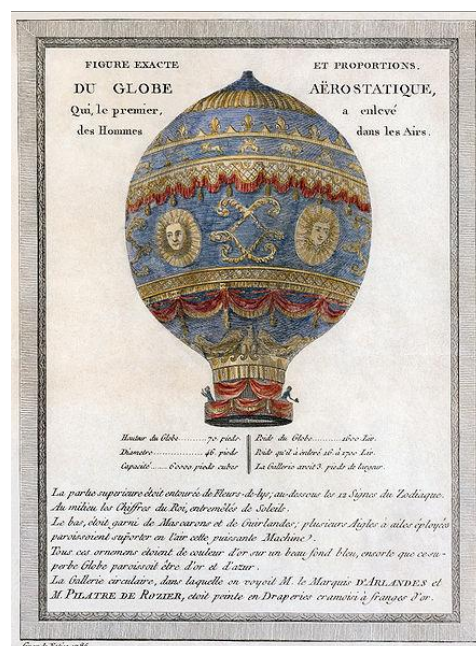 FIGURE EXACTE ET PROPORTIONS,
DU GLOBE AËROSTATIQUE,
Qui, le premier, a enlevé
des Hommes dans les Airs.
Hauteur du Globe 70 pieds
Diametre 46 pieds
Capacité 60000 pieds cubes
Poids du Globe 1600 Liv.
Poids qu'il a enlevé 16 à 1700 Liv.
La Gallerie avoit 3. pieds de largeur.
La partie superieure étoit entourée de Fleurs-de-lys; au-dessous les 12 Signes du Zodiaque.
Au milieu les Chiffres du Roi, entremêlés de Soleils.
Le bas, étoit garni de Mascarons et de Guirlandes; plusieurs Aigles à ailes éployées
paroissoient suporter en l'air cette puissante Machine.
Tous ces ornemens étoient de couleur d'or sur un beau fond bleu, ensorte que ce su-
perbe Globe paroissoit être d'or et d'azur.
La Gallerie circulaire, dans laquelle on voyoit M. le Marquis D'ARLANDES et
M. PILATRE DE ROZIER, etoit peinte en Draperies cramoisi à franges d'or.